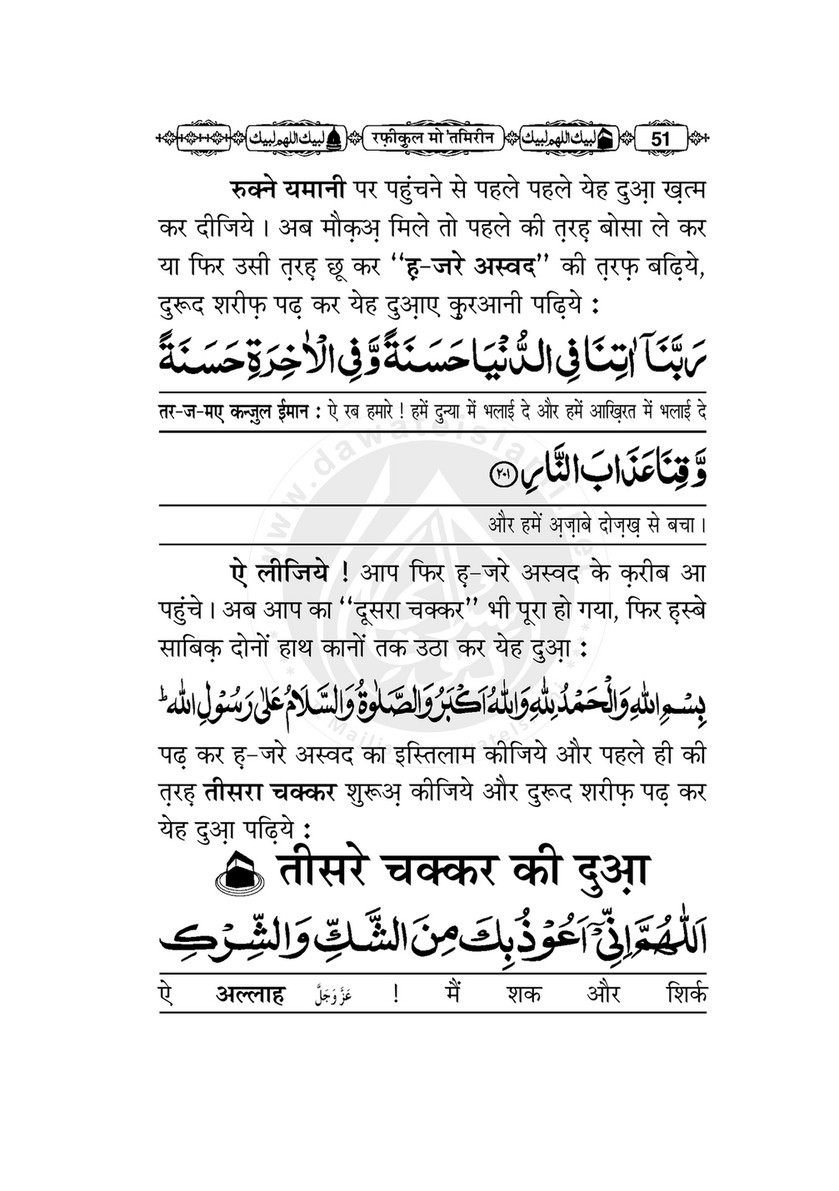 لبيك اللهم لبيك रफ़ीकुल मो'तमिरीन لبيك اللهم لبيك 51
रुक्ने यमानी पर पहुंचने से पहले पहले येह दुआ़ ख़त्म
कर दीजिये । अब मौक़अ़ मिले तो पहले की त़रह़ बोसा ले कर
या फिर उसी त़रह़ छू कर ‘‘ह़-जरे अस्वद’’ की त़रफ़ बढ़िये,
दुरूद शरीफ़ पढ़ कर येह दुआ़ए क़ुरआनी पढ़िये :
رَبَّنَاۤ اٰتِنَا فِی الدُّنْیَا حَسَنَةً وَّ فِی الْاٰخِرَةِ حَسَنَةً
तर-ज-मए कन्ज़ुल ईमान : ऐ रब हमारे ! हमें दुन्या में भलाई दे और हमें आख़िरत में भलाई दे
وَّ قِنَا عَذَابَ النَّارِ ﴿۲۰۱﴾
और हमें अ़ज़ाबे दोज़ख़ से बचा ।
ऐ लीजिये ! आप फिर ह़-जरे अस्वद के क़रीब आ
पहुंचे । अब आप का ‘‘दूसरा चक्कर’’ भी पूरा हो गया, फिर ह़स्बे
साबिक़ दोनों हाथ कानों तक उठा कर येह दुआ़ :
بِسْمِ اللهِ وَالْحَمْدُ لِلّٰهِ وَاللهُ اَكْبَرُ وَالصَّلٰوةُ وَالسَّلَامُ عَلٰی رَسُوْلِ اللهِ ؕ
पढ़ कर ह़-जरे अस्वद का इस्तिलाम कीजिये और पहले ही की
त़रह़ तीसरा चक्कर शुरूअ़ कीजिये और दुरूद शरीफ़ पढ़ कर
येह दुआ़ पढ़िये :
तीसरे चक्कर की दुआ़
اَللّٰهُمَّ اِنِّیْۤ اَعُوْذُ بِكَ مِنَ الشَّكِّ وَالشِّرْكِ
ऐ अल्लाह عَزَّوَجَلَّ ! मैं शक और शिर्क